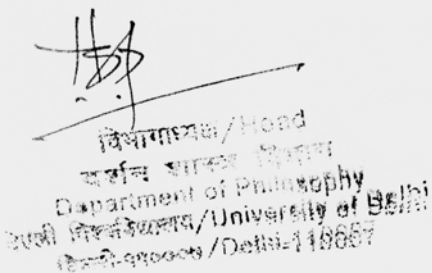 विभागाध्यक्ष/Head
दर्शन शास्त्र विभाग
Department of Philosophy
विश्वविद्यालय/University of Delhi
/Delhi-110007